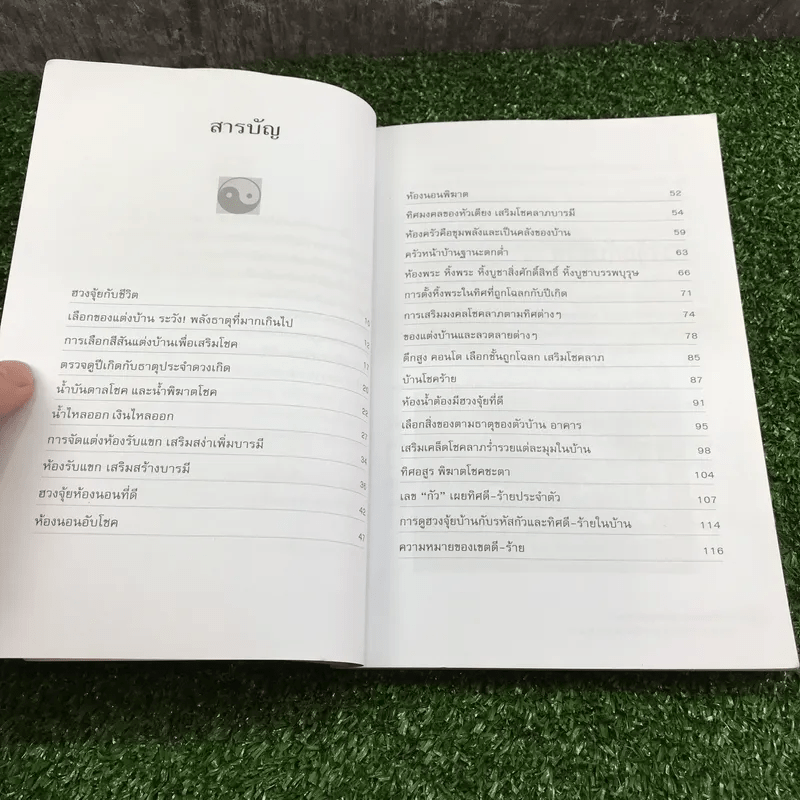 สารบัญ
ฮวงจุ้ยกับชีวิต
เลือกของแต่งบ้าน ระวัง! พลังธาตุที่มากเกินไป 10
การเลือกสีสันแต่งบ้านเพื่อเสริมโชค 12
ตรวจดูปีเกิดกับธาตุประจำดวงเกิด 17
น้ำบันดาลโชค และน้ำพิฆาตโชค 20
น้ำไหลออก เงินไหลออก 22
การจัดแต่งห้องรับแขก เสริมสง่าเพิ่มบารมี 27
ห้องรับแขก เสริมสร้างบารมี 34
ฮวงจุ้ยห้องนอนที่ดี 36
ห้องนอนอับโชค 42
47
ห้องนอนพิฆาต 52
ทิศมงคลของหัวเตียง เสริมโชคลาภบารมี 54
ห้องครัวคือขุมพลังและเป็นคลังของบ้าน 59
ครัวหน้าบ้านฐานะตกต่ำ 63
ห้องพระ หิ้งพระ หิ้งบูชาสิ่งศักดิ์สิทธิ์ หิ้งบูชาบรรพบุรุษ 66
การตั้งหิ้งพระในทิศที่ถูกโฉลกกับปีเกิด 71
การเสริมมงคลโชคลาภตามทิศต่างๆ 74
ของแต่งบ้านและลวดลายต่างๆ 78
ตึกสูง คอนโด เลือกชั้นถูกโฉลก เสริมโชคลาภ 85
บ้านโชคร้าย 87
ห้องน้ำต้องมีฮวงจุ้ยที่ดี 91
เลือกสิ่งของตามธาตุของตัวบ้าน อาคาร 95
เสริมเคล็ดโชคลาภร่ำรวยแต่ละมุมในบ้าน 98
ทิศอสูร พิฆาตโชคชะตา 104
เลข “กัว” เผยทิศดี-ร้ายประจำตัว 107
การดูฮวงจุ้ยบ้านกับรหัสกัวและทิศดี-ร้ายในบ้าน 114
ความหมายของเขตดี-ร้าย 116